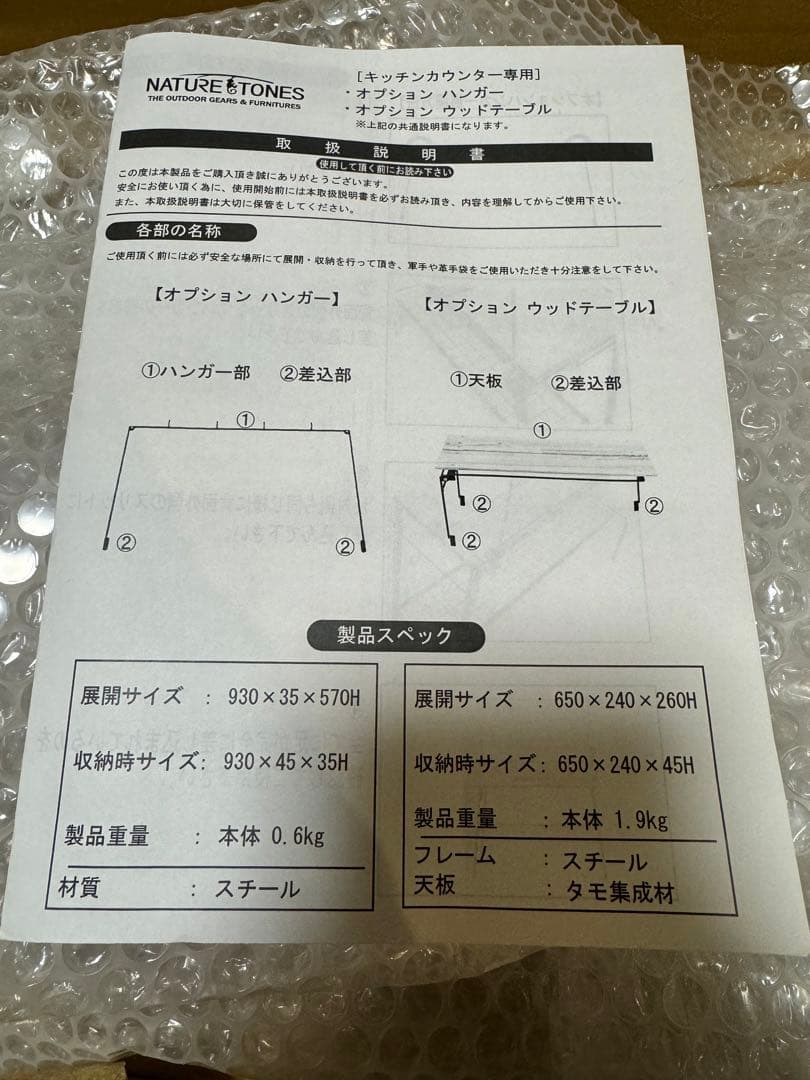 NATURE TONES
THE OUTDOOR GEARS & FURNITURES
[キッチンカウンター専用]
・オプション ハンガー
・オプション ウッドテーブル
※上記の共通説明書になります。
取扱説明書
使用して頂く前にお読み下さい
この度は本製品をご購入頂き誠にありがとうございます。
安全にお使い頂く為に、使用開始前には本取扱説明書を必ずお読み頂き、内容を理解してからご使用下さい。
また、本取扱説明書は大切に保管をしてください。
各部の名称
ご使用頂く前には必ず安全な場所にて展開・収納を行って頂き、軍手や革手袋をご使用いただき十分注意をして下さい。
【オプション ハンガー】
①ハンガー部 ②差込部
①
②
②
【オプション ウッドテーブル】
①天板 ②差込部
①
②
②
②
製品スペック
展開サイズ : 930×35×570H
収納時サイズ: 930×45×35H
製品重量 : 本体 0.6kg
材質 : スチール
展開サイズ : 650×240×260H
収納時サイズ: 650×240×45H
製品重量 : 本体 1.9kg
フレーム : スチール
天板 : タモ集成材